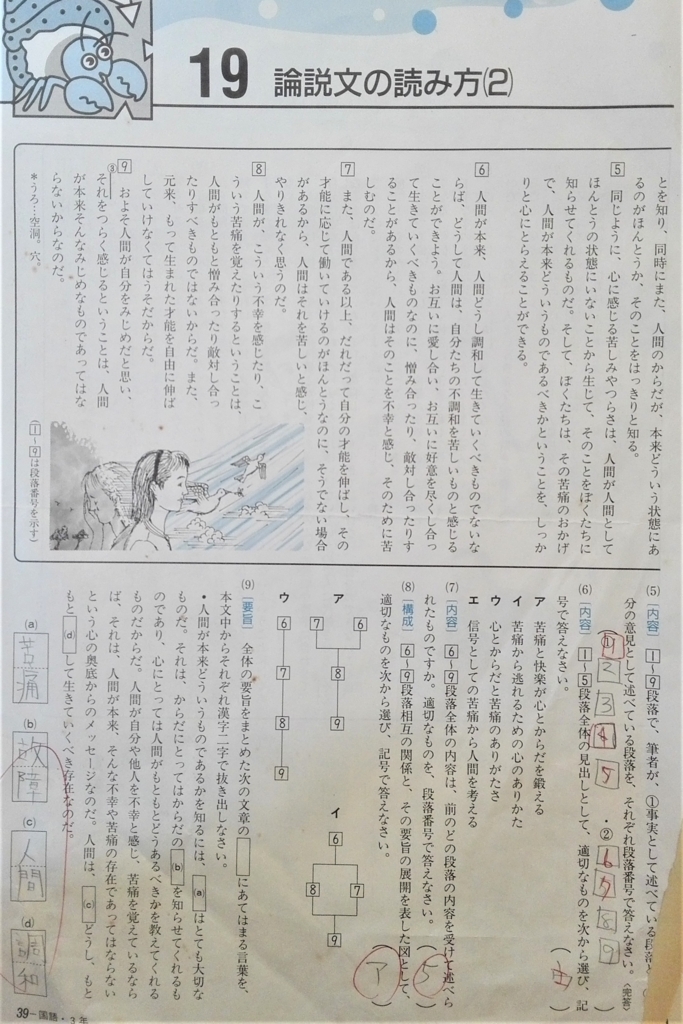 19 論説文の読み方(2)
とを知り、同時にまた、人間のからだが、本来どういう状態にあ
るのがほんとうか、そのことをはっきりと知る。
5 同じように、心に感じる苦しみやつらさは、人間が人間として
ほんとうの状態にいないことから生じて、そのことをぼくたちに
知らせてくれるものだ。そして、ぼくたちは、その苦痛のおかげ
で、人間が本来どういうものであるべきかということを、しっか
りと心にとらえることができる。
6 人間が本来、人間どうし調和して生きていくべきものでないな
らば、どうして人間は、自分たちの不調和を苦しいものと感じる
ことができよう。お互いに愛し合い、お互いに好意を尽くし合っ
て生きていくべきものなのに、憎み合ったり、敵対し合ったりす
ることがあるから、人間はそのことを不幸と感じ、そのために苦
しむのだ。
7 また、人間である以上、だれだって自分の才能を伸ばし、その
才能に応じて働いていけるのがほんとうなのに、そうでない場合
があるから、人間はそれを苦しいと感じ、
やりきれなく思うのだ。
8 人間が、こういう不幸を感じたり、こ
ういう苦痛を覚えたりするということは、
人間がもともと憎み合ったり敵対し合っ
たりすべきものではないからだ。また、
元来、もって生まれた才能を自由に伸ば
していけなくてはうそだからだ。
9 およそ人間が自分をみじめだと思い、
⑧それをつらく感じるということは、人間
が本来そんなみじめなものであってはな
らないからなのだ。
*うろ…空洞。穴。
(1〜9は段落番号を示す)
(5) 内容 1〜9段落で、筆者が、①事実として述べている段落と、
分の意見として述べている段落を、それぞれ段落番号で答えなさい。〈完答〉
① 1 2 3 4 5 ・② 6 7 8 9
(6) 内容 1〜5段落全体の見出しとして、適切なものを次から選び、記
号で答えなさい。
ア 苦痛と快楽が心とからだを鍛える
イ 苦痛から逃れるための心のありかた
ウ 心とからだと苦痛のありがたさ
エ 信号としての苦痛から人間を考える
(7) 内容 6〜9段落全体の内容は、前のどの段落の内容を受けて述べら
れたものですか。適切なものを、段落番号で答えなさい。 (5)
(8) 構成 6〜9段落相互の関係と、その要旨の展開を表した図として、
適切なものを次から選び、記号で答えなさい。 (ア)
ア 6 7 8 9
イ 6 7 8 9
ウ 6 7 8 9
(9) 要旨 全体の要旨をまとめた次の文章の にあてはまる言葉を、
本文中からそれぞれ漢字二字で抜き出しなさい。
・人間が本来どういうものであるかを知るには、(a)はとても大切な
ものだ。それは、からだにとってはからだの(b)を知らせてくれるも
のであり、心にとっては人間がもともとどうあるべきかを教えてくれる
ものだからだ。人間が自分や他人を不幸と感じ、苦痛を覚えているなら
ば、それは、人間が本来、そんな不幸や苦痛の存在であってはならない
という心の奥底からのメッセージなのだ。人間は、(c)どうし、もと
もと(d)して生きていくべき存在なのだ。
(a) 苦痛
(b) 故障
(c) 人間
(d) 調和
39—国語・3年